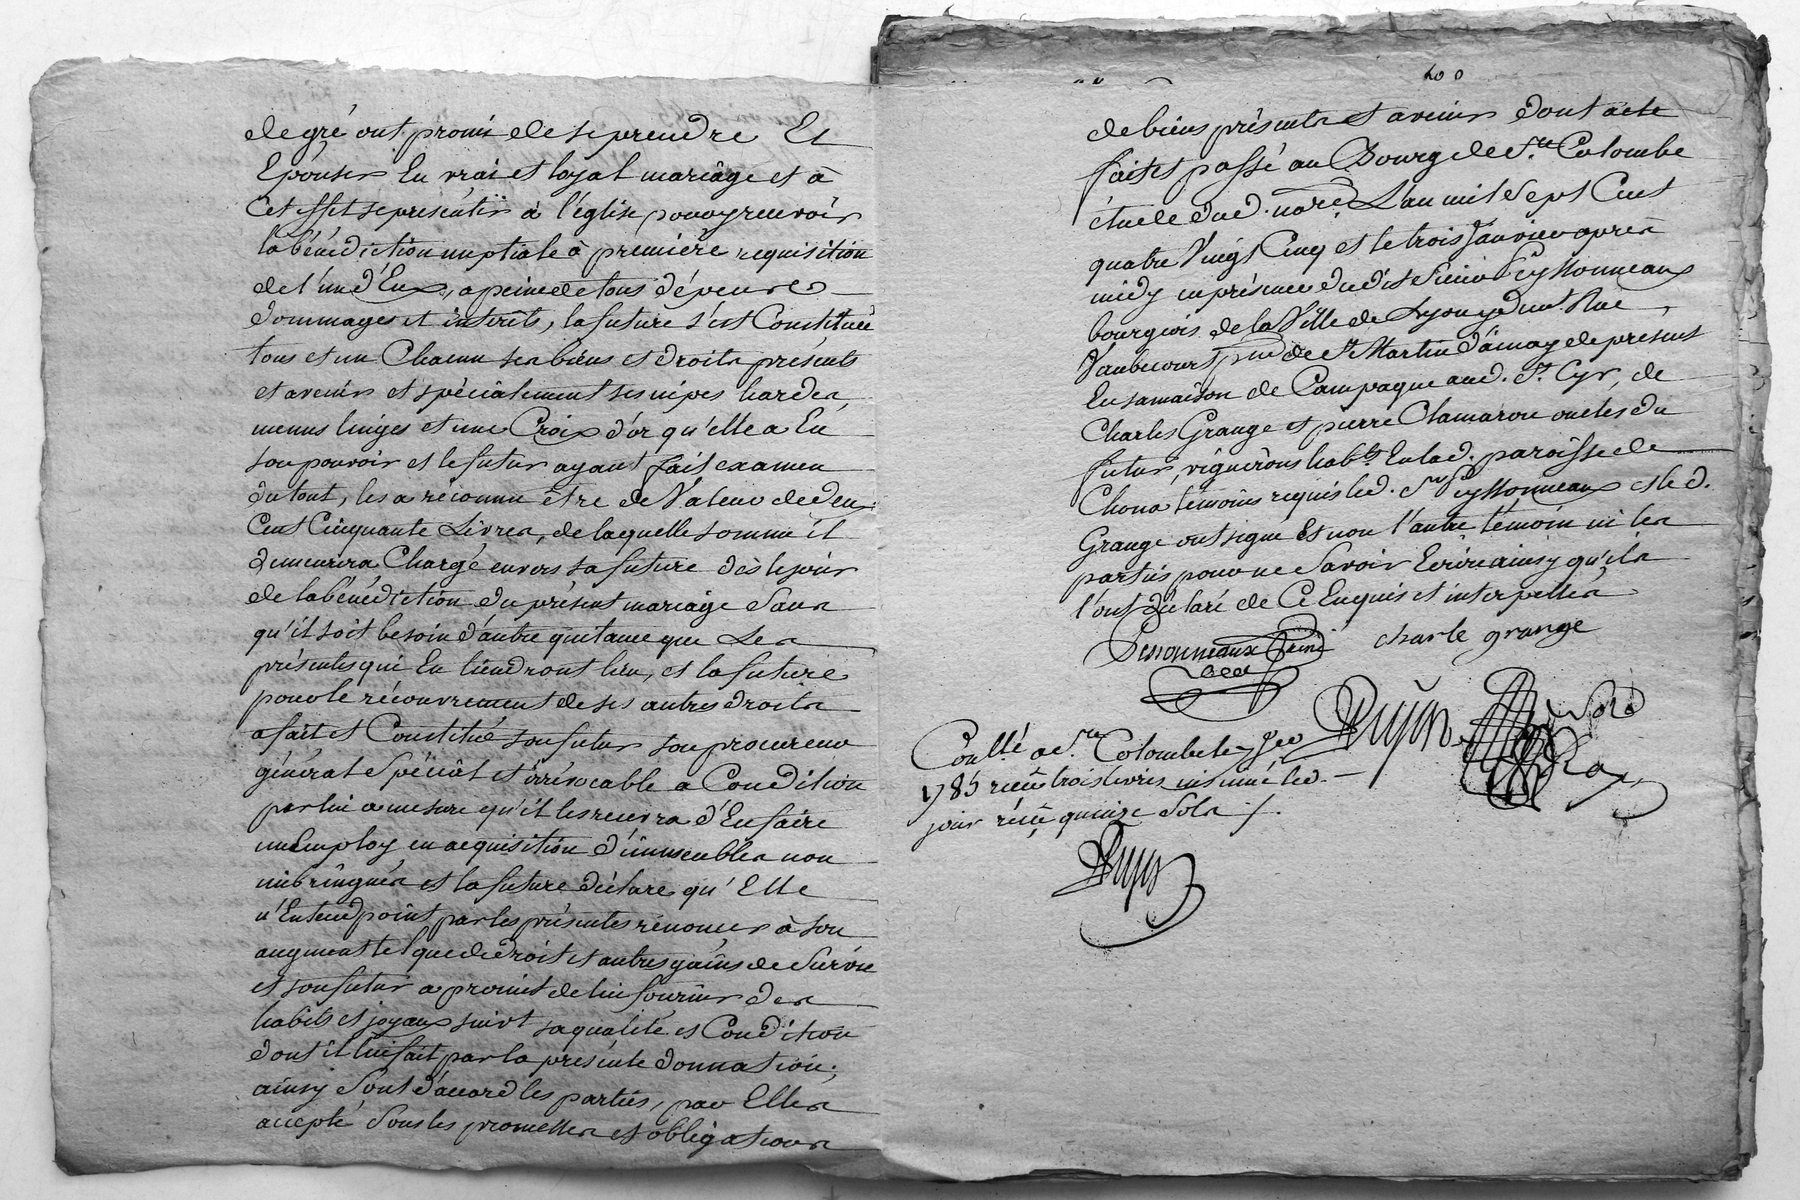 de gré ont promi de se prendre Et
Epouser En vrai et loyal mariâge et à
Cet effet se présentir à l'église pour y recevoir
la bénédiction nuptiale à première requisition
de l'un d'Eux, a peine de tous dépens
dommages et intérêts, la future s'est Constituée
tous et un Chacun ses biens et droits présents
et avenir et spécialement ses nipes hardes
menus linges et une Croix d'or qu'elle a En
son pouvoir et le futur ayant fait examen
du tout, les a réconnu être de Valeur de deux
Cent Cinquante Livres, de laquelle somme il
demeurera Chargé envers sa future dès le jour
de la bénédiction du présent mariage Sans
qu'il soit besoin d'autre quitance que Les
présentes qui En tiendront lieu, et la future
pour le récouvrement de ses autres droits
a fait et Constitué son futur son procureur
général Spécial et irrévocable a Condition
par lui a mesure qu'il les recevra d'En faire
un Employ en acquisition d'immeubles non
imbringués et la future déclare qu'Elle
n'Entend point par les présentes rénoncer à son
augment tel que de droit et autres gains de Survie
et son futur a promis de lui fournir des
habits et joyaux suivt sa qualité et Condition
dont il lui fait par la présente donnation;
ainsy Sont d'accord les parties, par Elles
accepté Sous les promesses et obligations
200
de biens présents et avenir dont acte
fait et passé au Bourg de Ste Colombe
étude dud. nore L'an mil Sept Cent
quatre Vingt Cinq et le trois Janvier après
midy en présence dudit Sieur Peyssonneaux
bourgeois de la Ville de Lyon y demt Rue
Vaubecourt psse de St Martin d'ainay de présent
En sa maison de Campagne aud. St Cyr, de
Charles Grange et pierre Clamaron oncles du
futur, vignerons habts En lad. paroisse de
Chona témoins requis led. Sr Peyssonneaux et led.
Grange ont signé Et non l'autre témoin ni les
parties pour ne Savoir Ecrire ainsy qu'ils
l'ont déclaré de Ce Enquis et interpellés
charle grange
Conllé a Ste Colombe le 7 Jer
1785 reçu trois livres insinué led.
jour réçu quinze Sols /.